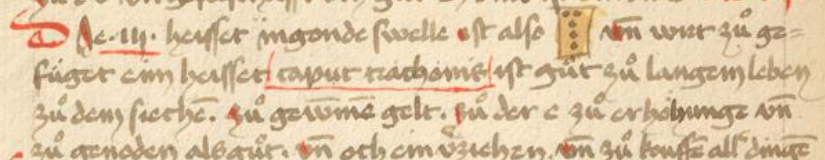 De .III. heisset ingonde swelle ist also vn̄ wirt zů ge=
füget einn heisset caput trachonis ist gůt zů langem leben
zů dem siechē. zů gewinnē gelt. zů der e zů erhöhunge vn̄
zů genoden als gůt. vn̄ och ein v̄ziehen. vn̄ zů kouffē all dingē